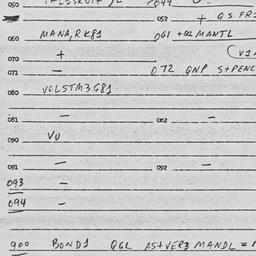 050
052 + QS FR
060 MANA, RK81 061 + QQ MANTL
070 +
071 — 072 QNP S+PENC
080 VGLSTM3G81
081 — 082 —
090 VU
091 — 092 —
093 —
094 —
900 BOND1 QGL AS+VER3 MANDL =